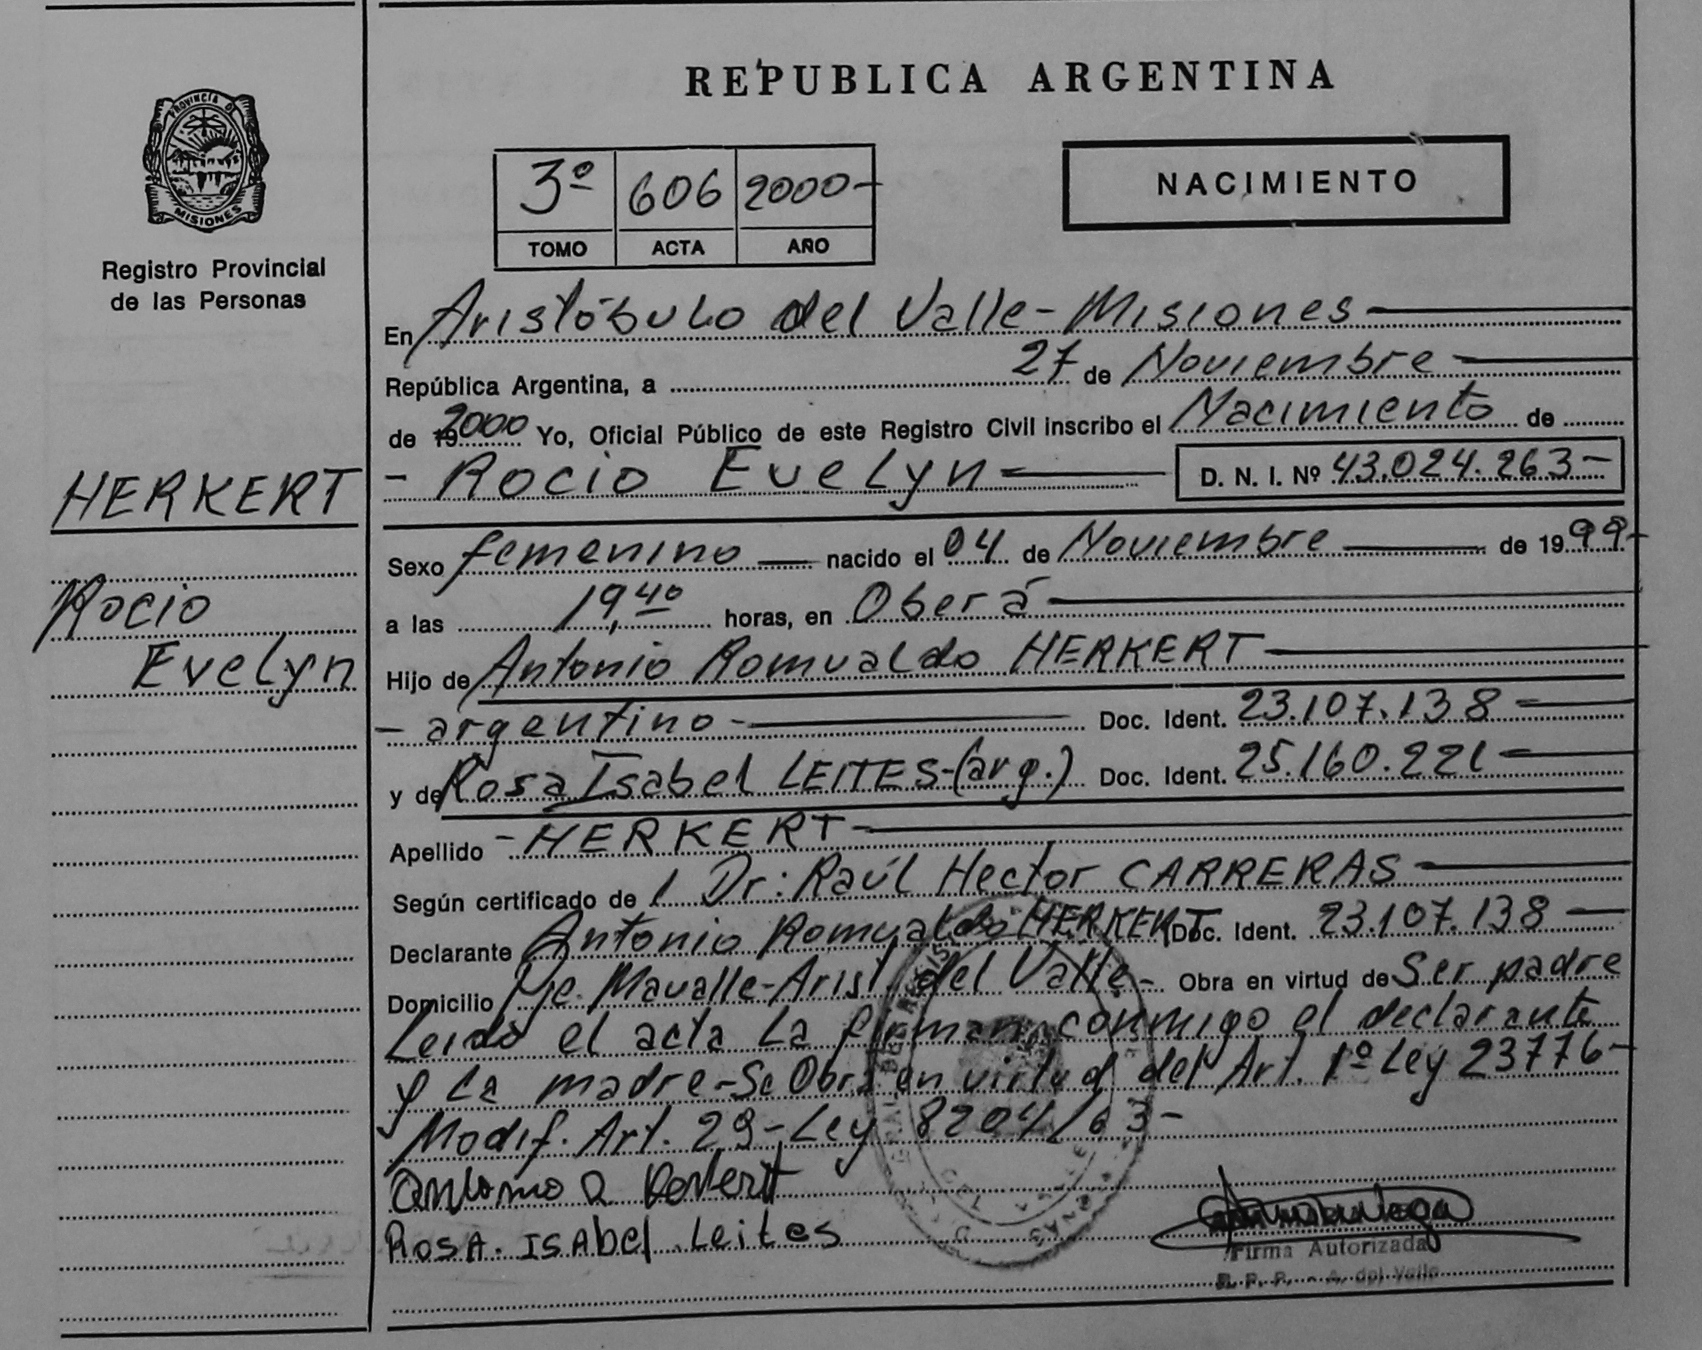 REPUBLICA ARGENTINA
PROVINCIA D
MISIONES
Registro Provincial
de las Personas
3º 606 2000-
TOMO ACTA AÑO
NACIMIENTO
HERKERT
Rocio
Evelyn
En Aristóbulo del Valle-Misiones
República Argentina, a 27 de Noviembre
de 19 2000 Yo, Oficial Público de este Registro Civil inscribo el Nacimiento de
- Rocio Evelyn - D. N. I. Nº 43.024.263-
Sexo femenino nacido el 04 de Noviembre de 1999-
a las 19,40 horas, en Oberá
Hijo de Antonio Romualdo HERKERT
- argentino - Doc. Ident. 23.107.138
y de Rosa Isabel LEITES-(arg.) Doc. Ident. 25.160.221
Apellido - HERKERT
Según certificado de / Dr: Raúl Hector CARRERAS
Declarante Antonio Romualdo HERKERT Doc. Ident. 23.107.138
Domicilio Pje. Mavalle-Arist. del Valle- Obra en virtud de Ser padre
Leido el acta La firman conmigo el declarante
y La madre-Se Obra en virtud del Art. 1º Ley 23776-
Modif. Art. 29-Ley 8204/63-
Antonio R Herkert
ROSA. ISAbel Leites
Firma Autorizada
R. P. P. - A. del Valle